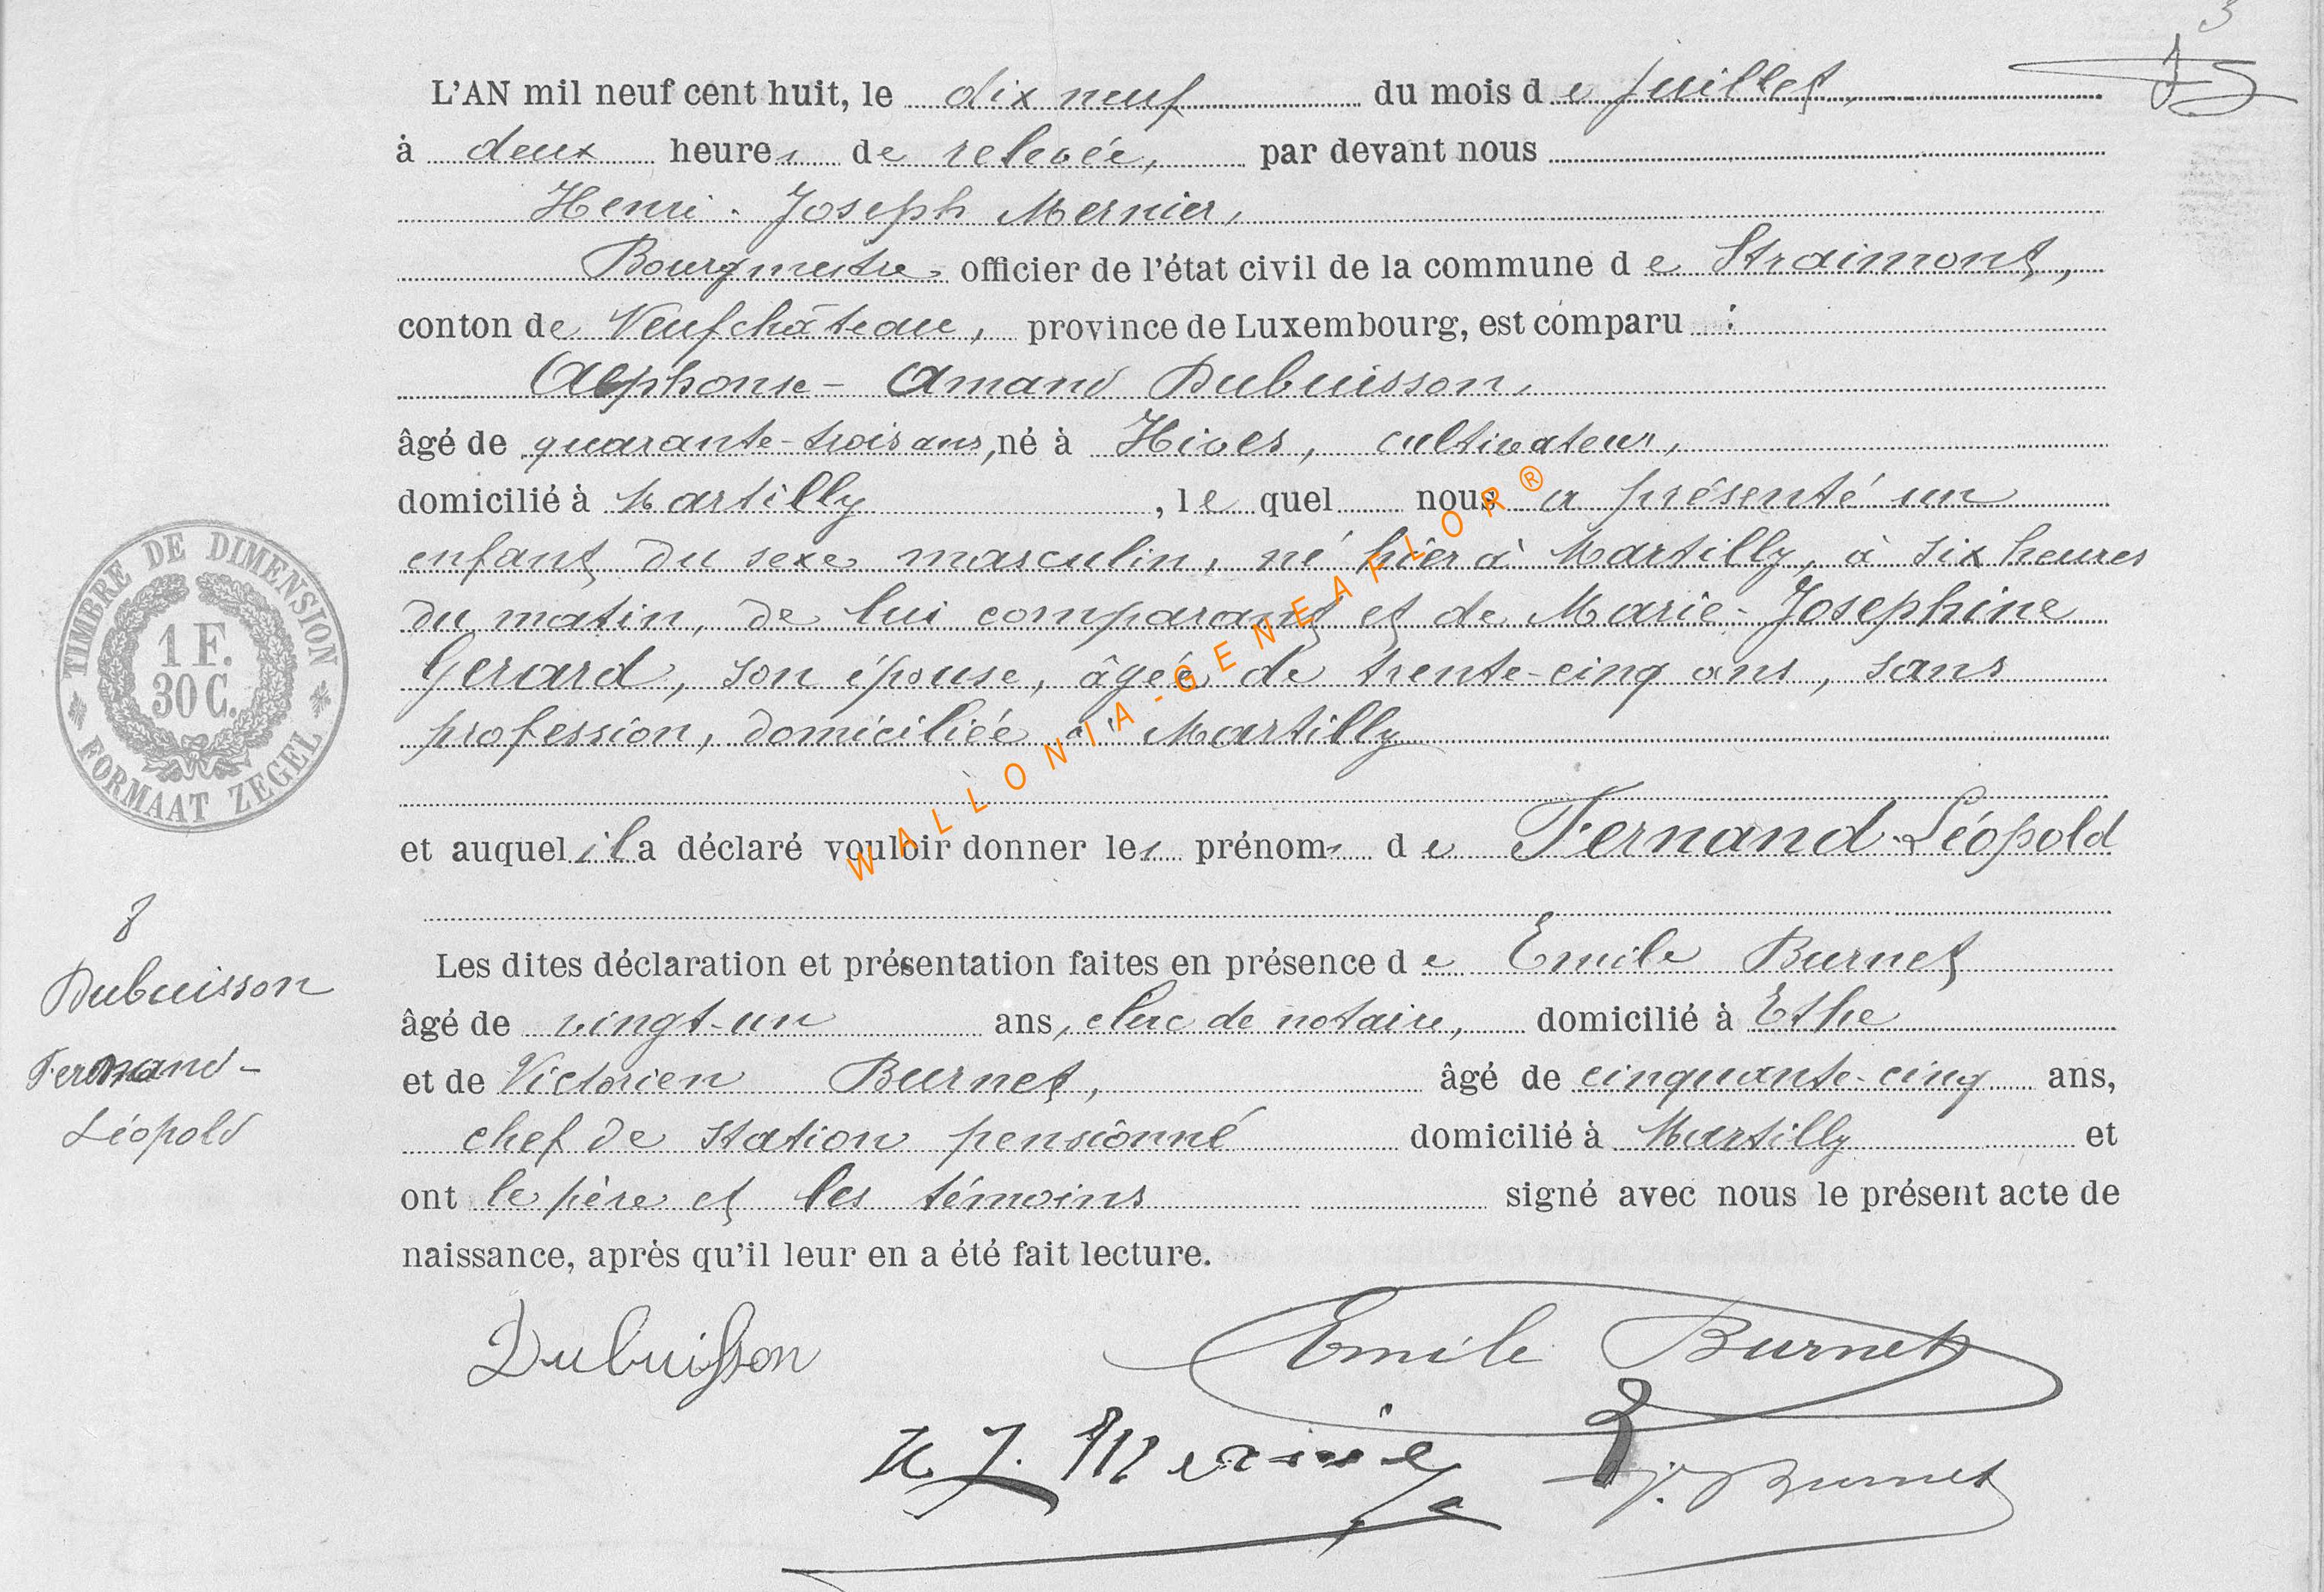 3
L'AN mil neuf cent huit, le dix neuf du mois de juillet,
à deux heures de relevée, par devant nous
Henri-Joseph Mernier,
Bourgmestre, officier de l'état civil de la commune de Straimont,
conton de Neufchâteau, province de Luxembourg, est comparu :
Alphonse-Amand Dubuisson,
âgé de quarante-trois ans, né à Hives, cultivateur,
domicilié à Martilly, lequel nous a présenté un
enfant du sexe masculin, né hier à Martilly, à six heures
du matin, de lui comparant et de Marie-Josephine
Gerard, son épouse, âgée de trente-cinq ans, sans
profession, domiciliée à Martilly
et auquel il a déclaré vouloir donner les prénoms de Fernand-Léopold
Les dites déclaration et présentation faites en présence de Emile Burnet
âgé de vingt-un ans, clerc de notaire, domicilié à Ethe
et de Victorien Burnet, âgé de cinquante-cinq ans,
chef de station pensionné domicilié à Martilly et
ont le père et les témoins signé avec nous le présent acte de
naissance, après qu'il leur en a été fait lecture.
TIMBRE DE DIMENSION
1 F.
30 C.
FORMAAT ZEGEL
8
Dubuisson
Fernand-
Léopold
WALLONIA-GENEAFLOR®
Dubuisson
Emile Burnet
H J. Mernier
J. Burnet